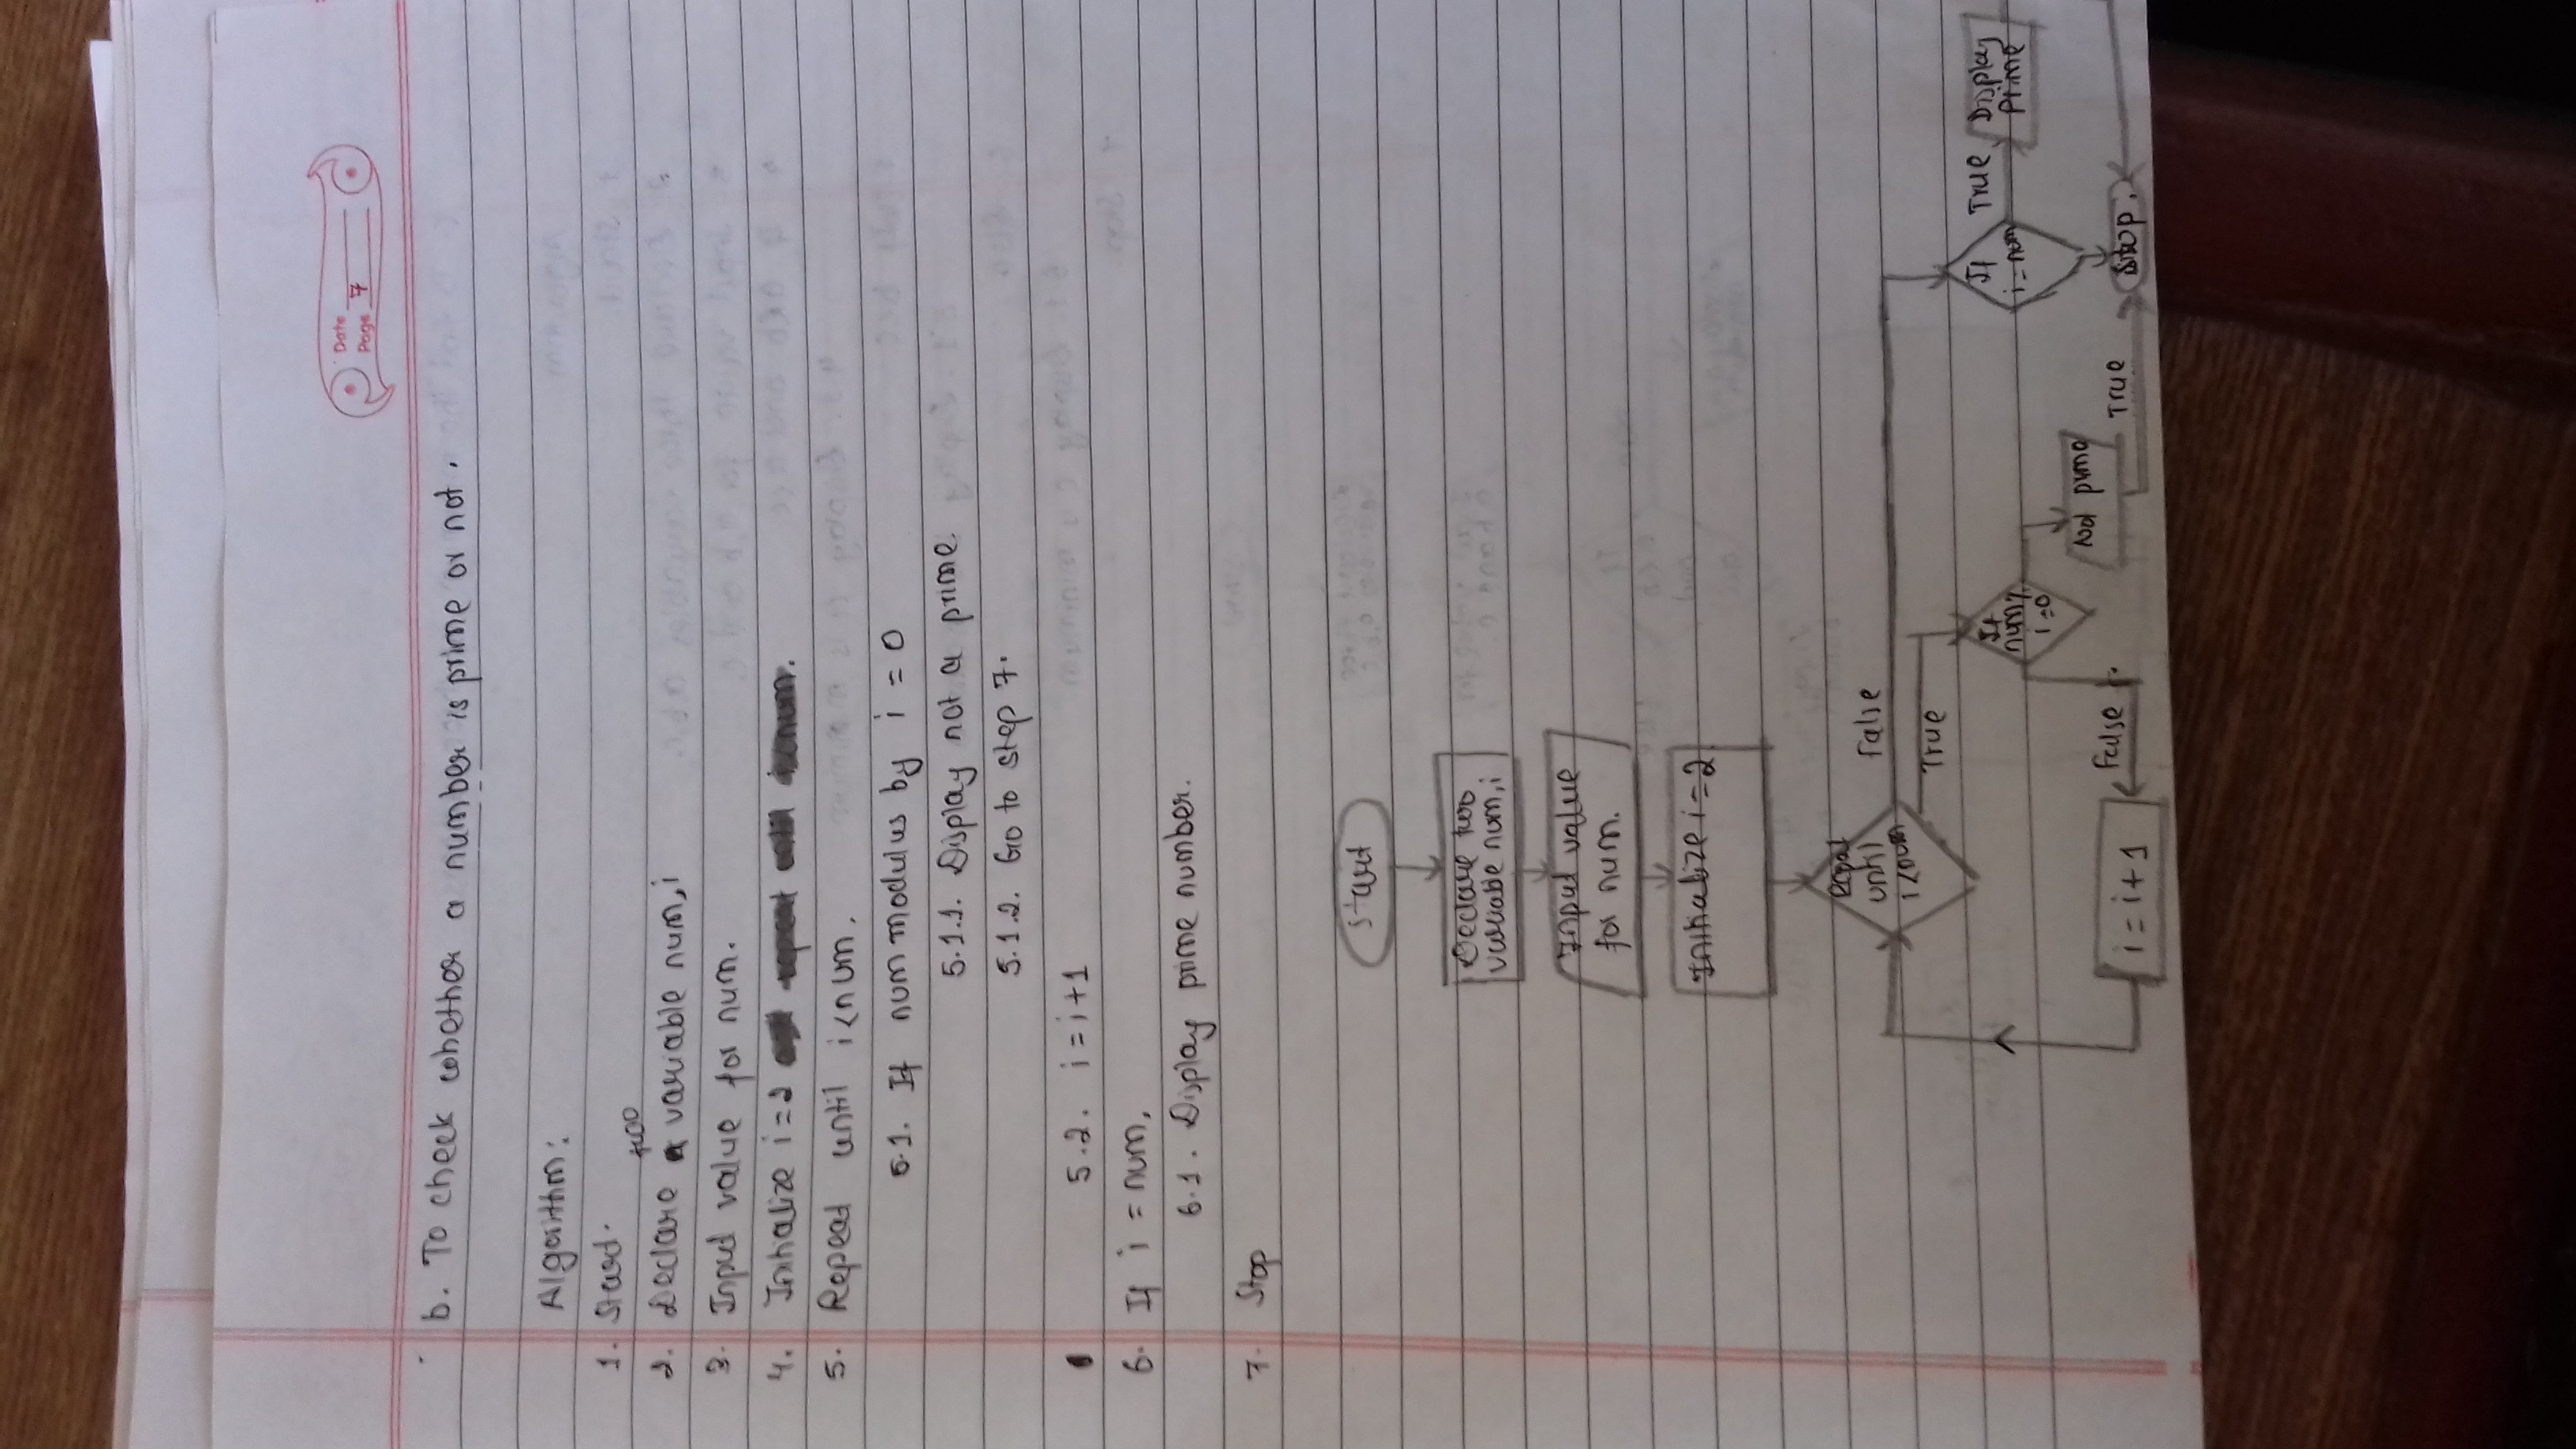 Date
Page 7
b. To check whether a number is prime or not.
Algorithm:
1. Start.
two
2. Declare variable num,i
3. Input value for num.
4. Initialize i=2
5. Repeat until i<num.
5.1. If num modulus by i = 0
5.1.1. Display not a prime.
5.1.2. Go to step 7.
5.2. i=i+1
6. If i = num,
6.1. Display prime number.
7. Stop
Start
Declare two
variable num,i
Input value
for num.
Initialize i=2
until
i<num
False
True
If
num%
i=0
If
i=num
True
Display
Prime
Not prime
False
i=i+1
True
Stop.